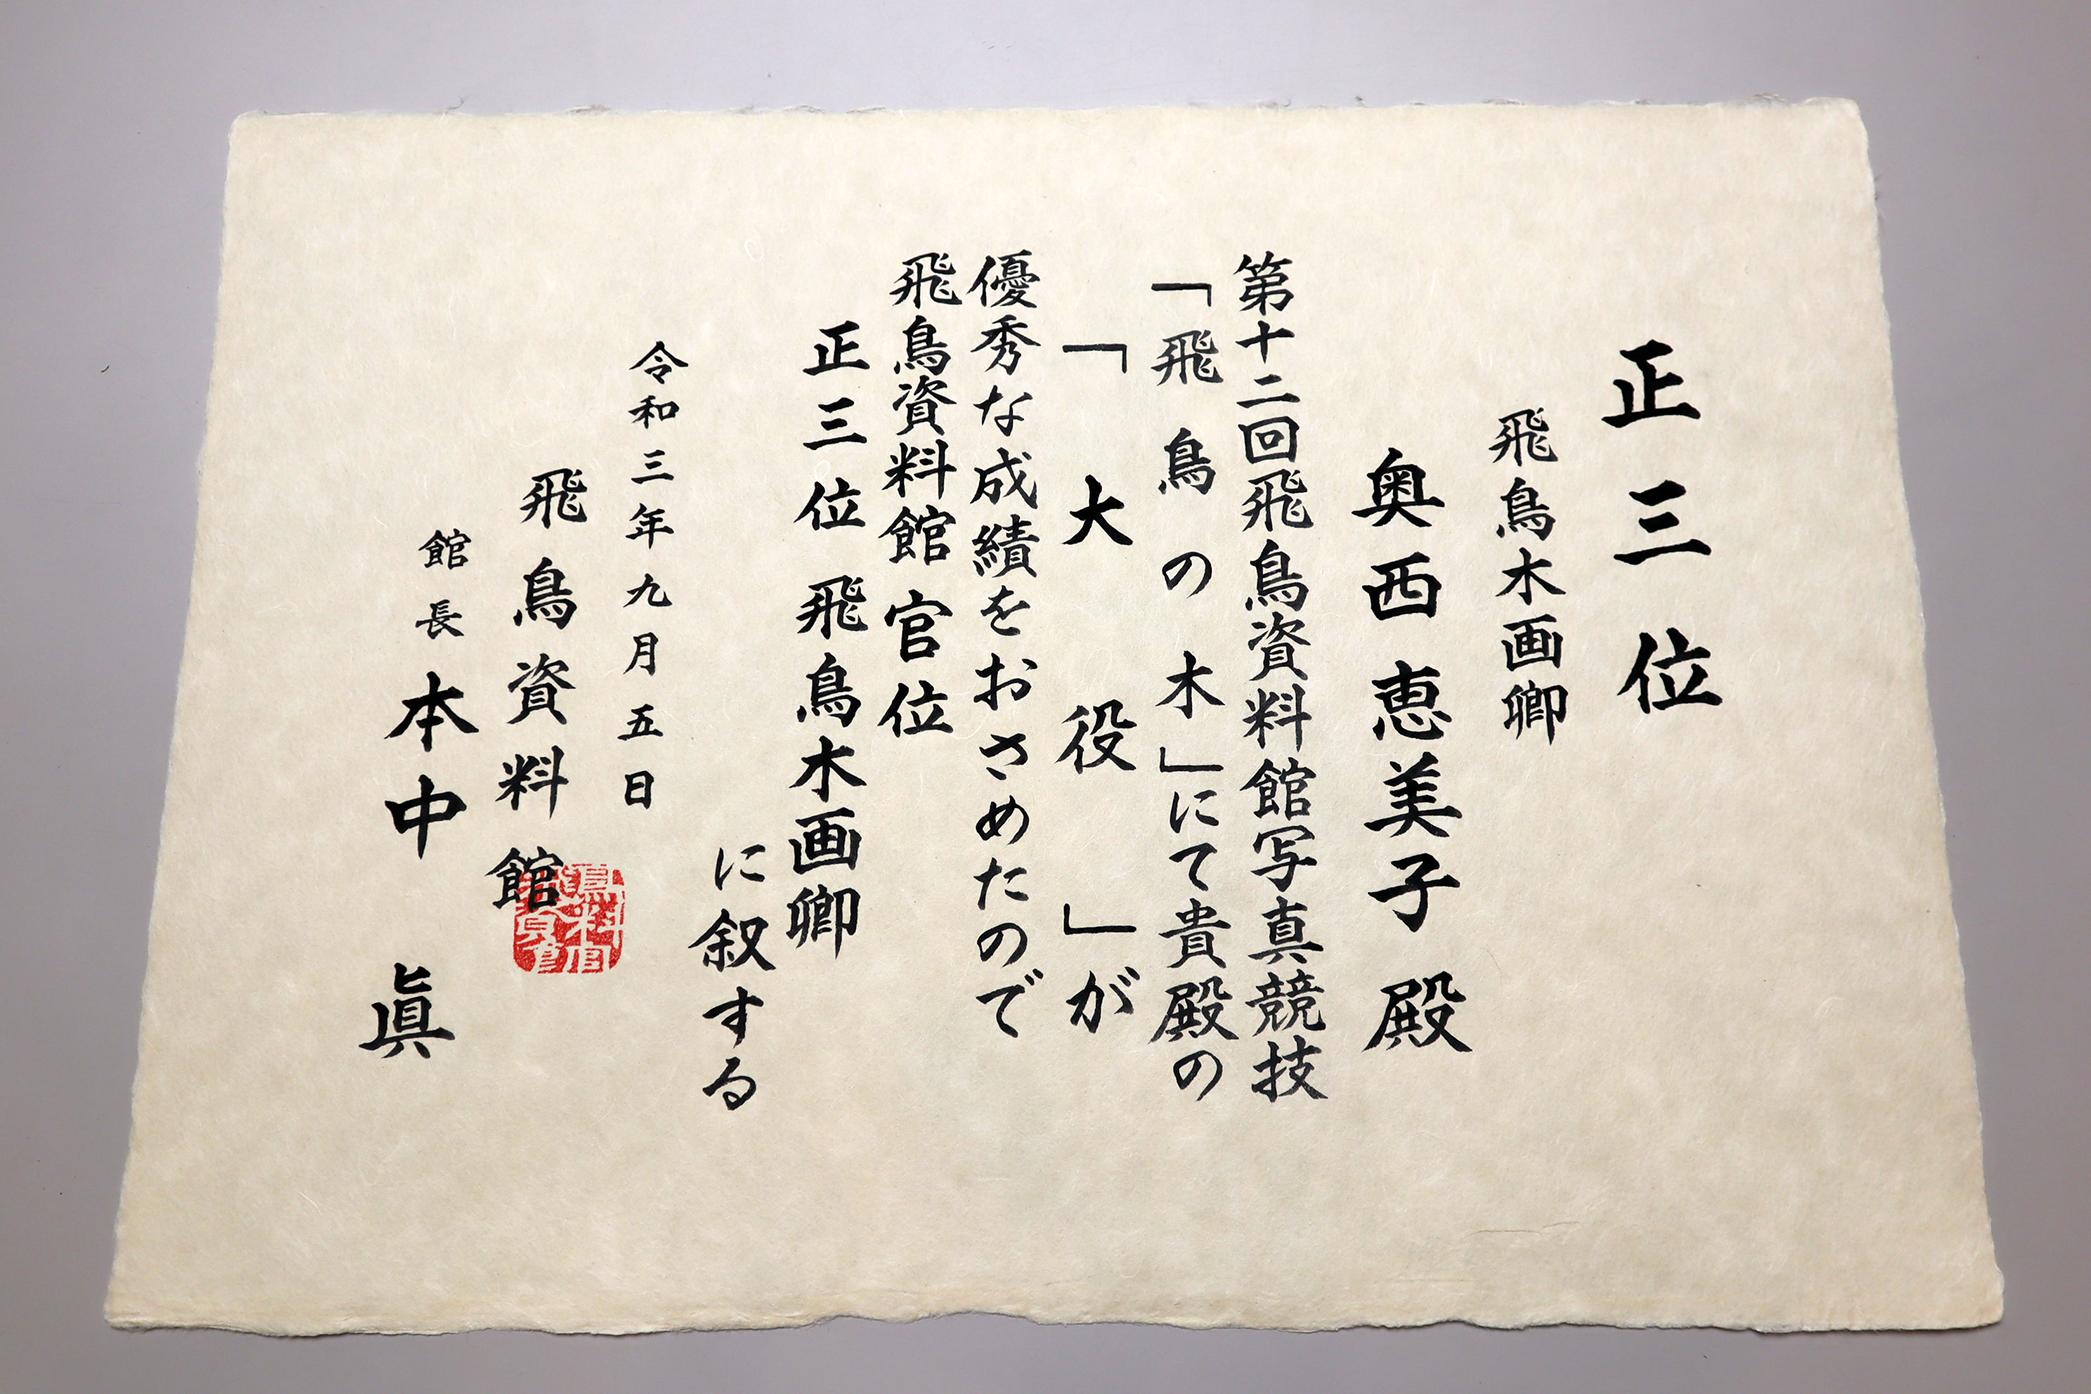 正三位
飛鳥木画卿
奥西恵美子殿
第十二回飛鳥資料館写真競技
「飛鳥の木」にて貴殿の
「大役」が
優秀な成績をおさめたので
飛鳥資料館官位
正三位飛鳥木画卿
に叙する
令和三年九月五日
飛鳥資料館
館長本中眞